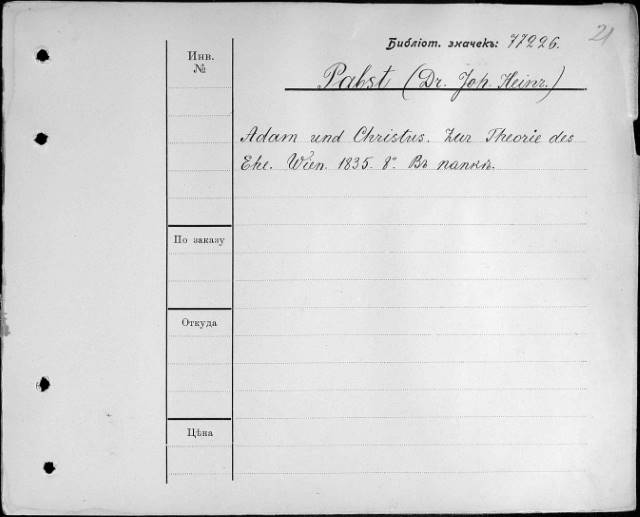 21
Библіот. значекъ: 77226.
Инв.
№
Pabst (Dr. Joh. Heinr.)
Adam und Christus. Zur Theorie des
Ehe. Wien. 1835. 8°. Въ папкѣ.
По заказу
Откуда
Цѣна